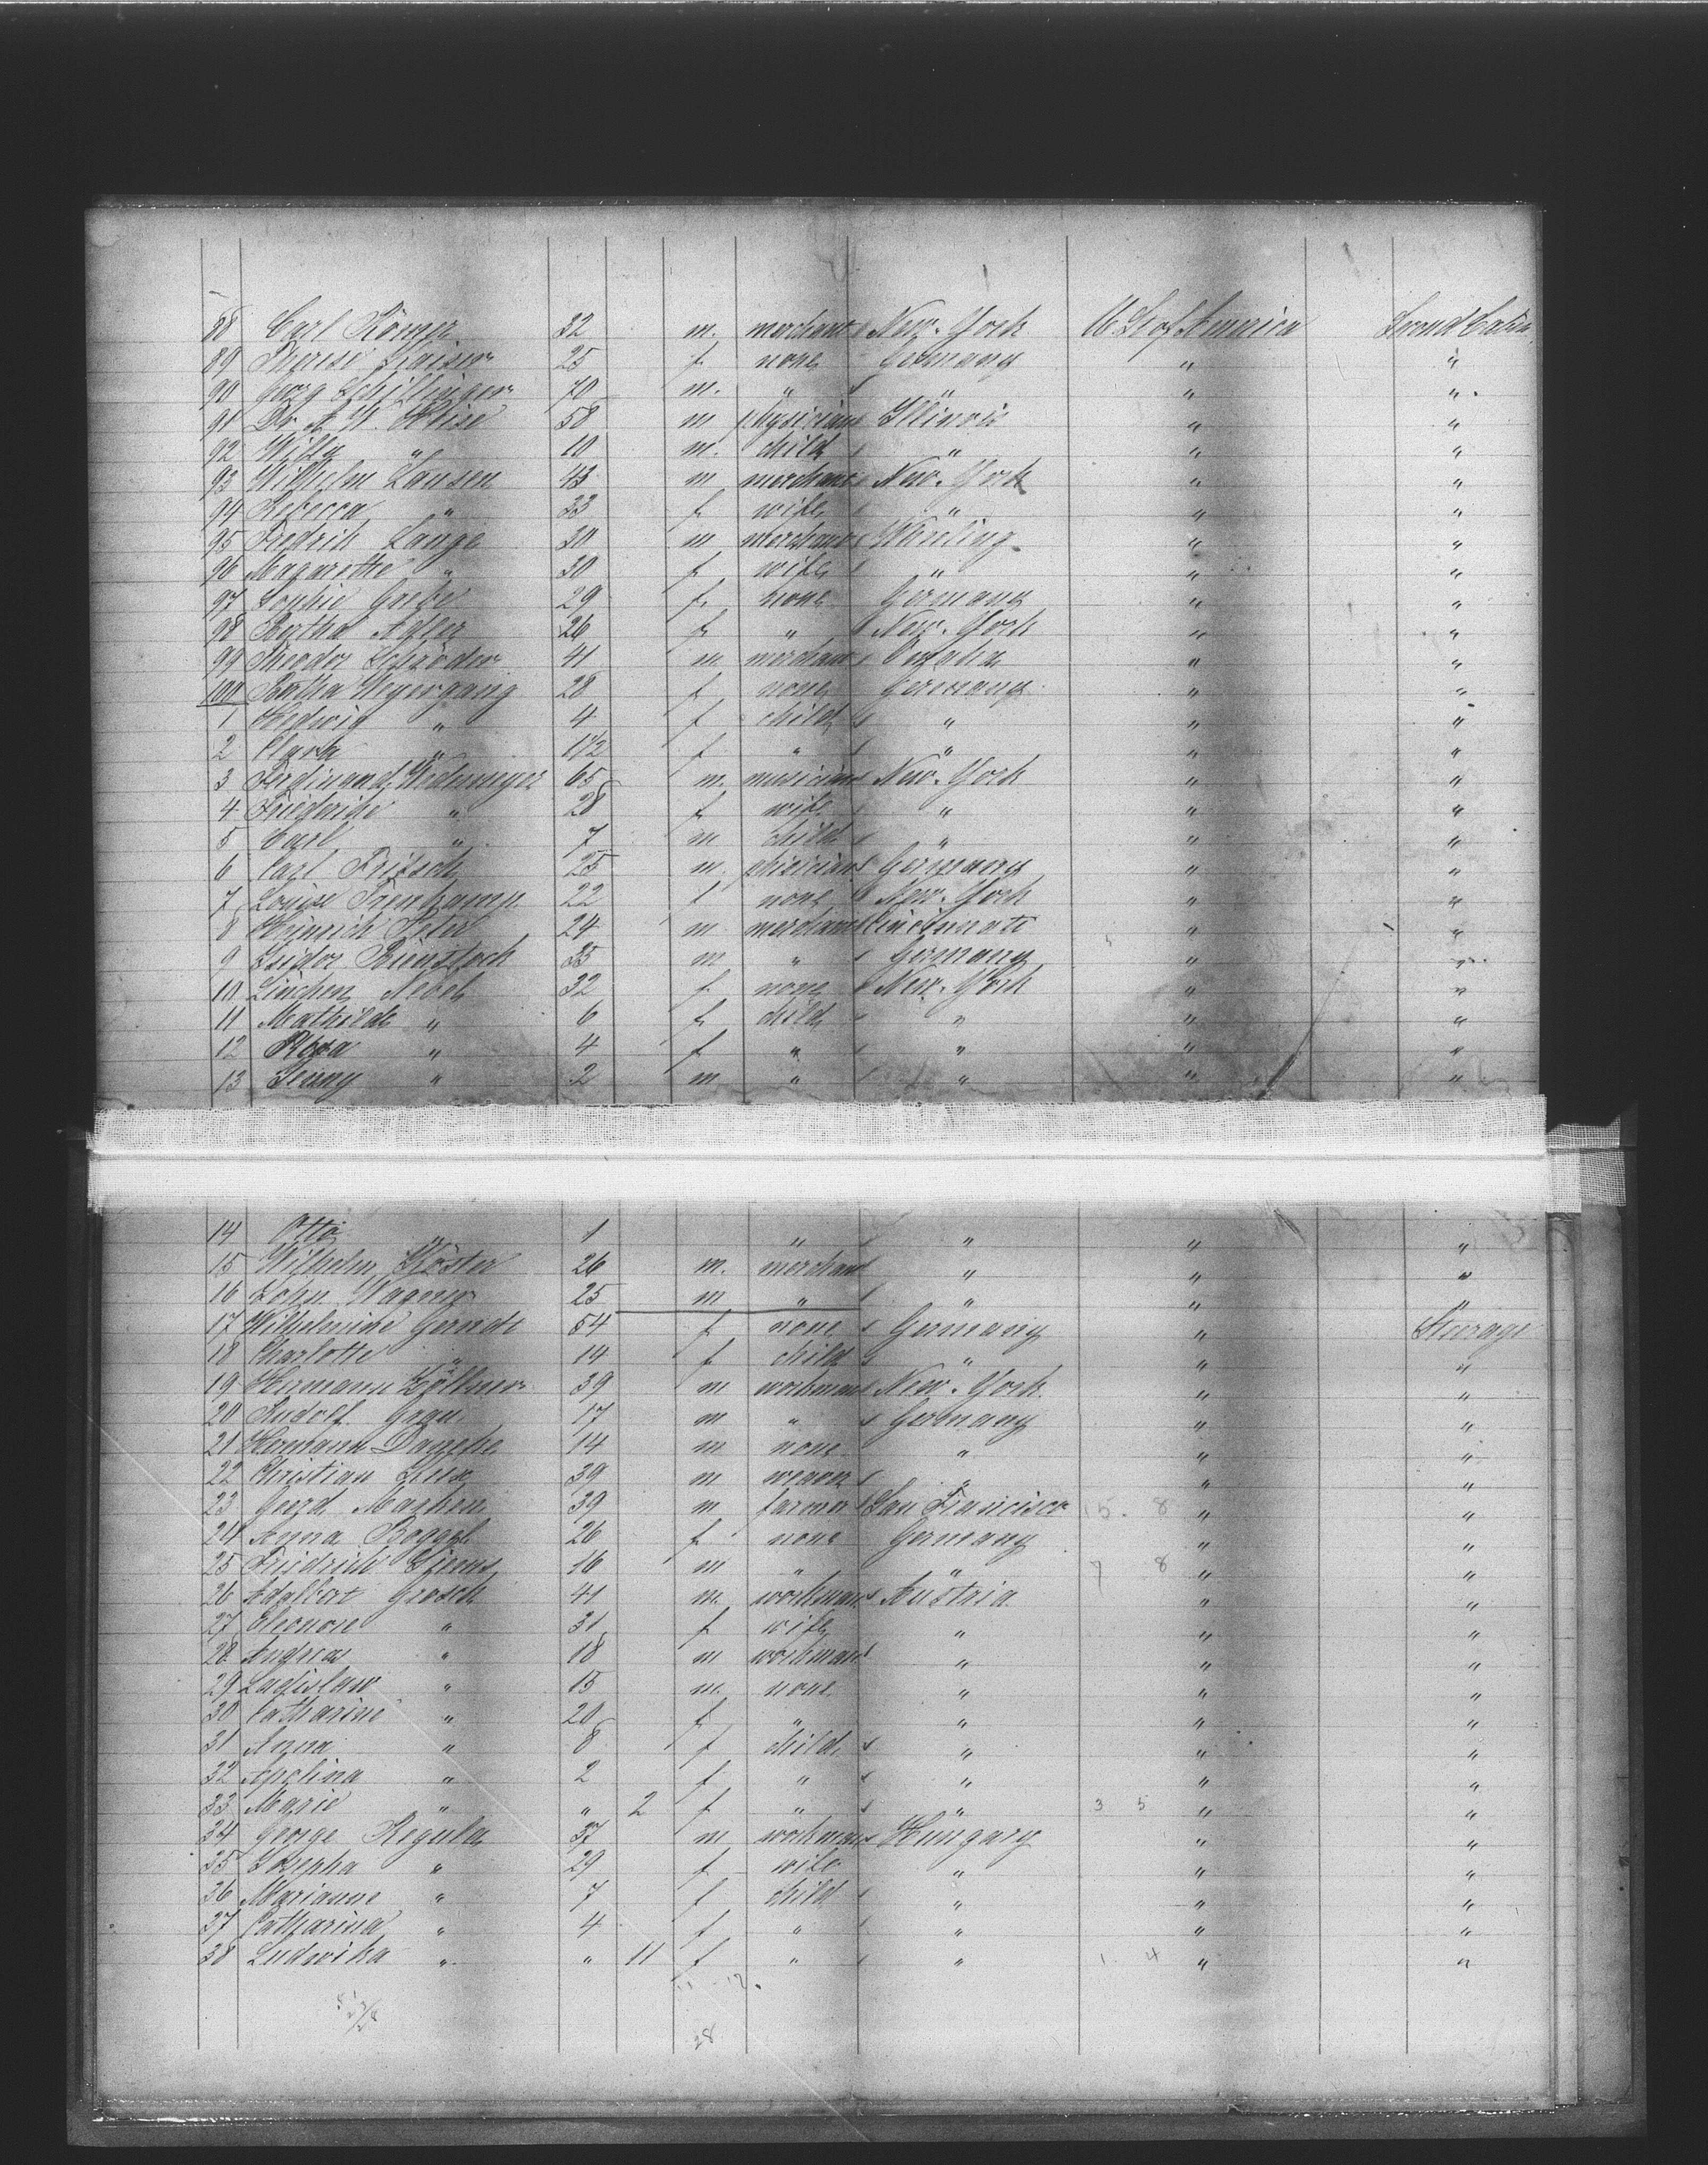 88 Carl Körner 32 m. merchant New-York U. St of America Second Cabin
89 Therese Kaiser 25 f. none Germany " "
90 Georg Schillinger 70 m. " " " "
91 Dr. A. W. Heise 58 m physician Illinois " "
92 Willy " 10 m. child " " "
93 Wilhelm Lansen 43 m merchant New-York " "
94 Rebecca " 33 f. wife " " "
95 Fredrich Lange 30 m merchant Wheeling " "
96 Magarethe " 30 f. wife " " "
97 Sophie Grebe 29 f. none Germany " "
98 Bertha Adler 26 f. " New-York " "
99 Theodor Schröder 41 m. merchant Omaha " "
100 Bertha Weyergang 28 f. none Germany " "
1 Hedwig " 4 f child " " "
2 Clara " 1 1/2 f. " " " "
3 Ferdinand 65 m. musician New-York " "
4 Friedericke " 28 f. wife " " "
5 Carl " 7 m child " " "
6 Carl Fritsch 25 m. phisician Germany " "
7 Louise 22 f none New-York " "
8 Heinrich Peter 24 m merchant Cincinnati " "
9 Isidor Bienstock 35 m " Germany " "
10 Linchen Nebel 32 f none New-York " "
11 Mathilde " 6 f. child " " "
12 Rosa " 4 f " " " "
13 " 2 m " " " "
14 Otto " 1 " " " "
15 Wilhelm Köster 26 m. merchant " " "
16 John Wagner 25 m " " " "
17 Wilhelmine Gerndt 54 f. none Germany " Steerage
18 Charlotte " 14 f child " " "
19 Hermann Zöllner 39 m workman New-York " "
20 Rudolf Grau 17 m " Germany " "
21 Hermann 14 m none " " "
22 Christian 39 m weaver " " "
23 Geerd 39 m farmer San Francisco 15. 8 " "
24 Anna 26 f. none Germany " "
25 Friedrich 16 m " " 7 8 " "
26 Adalbert Grosch 41 m. workman Austria " "
27 Eleonore " 31 f wife " " "
28 Andreas " 18 m workman " " "
29 Ladislaw " 15 m. none " " "
30 Catharine " 20 f. " " " "
31 Anna " 8 f child " " "
32 Apolina " 2 f " " " "
33 Marie " " 2 f " " 3 5 " "
34 George Regula 37 m workman Hungary " "
35 Josepha " 29 f wife " " "
36 Marianne " 7 f child " " "
37 Catharina " 4 f " " " "
38 Ludwika " " 11 f " " 1. 4 " "
11 - 12.
28